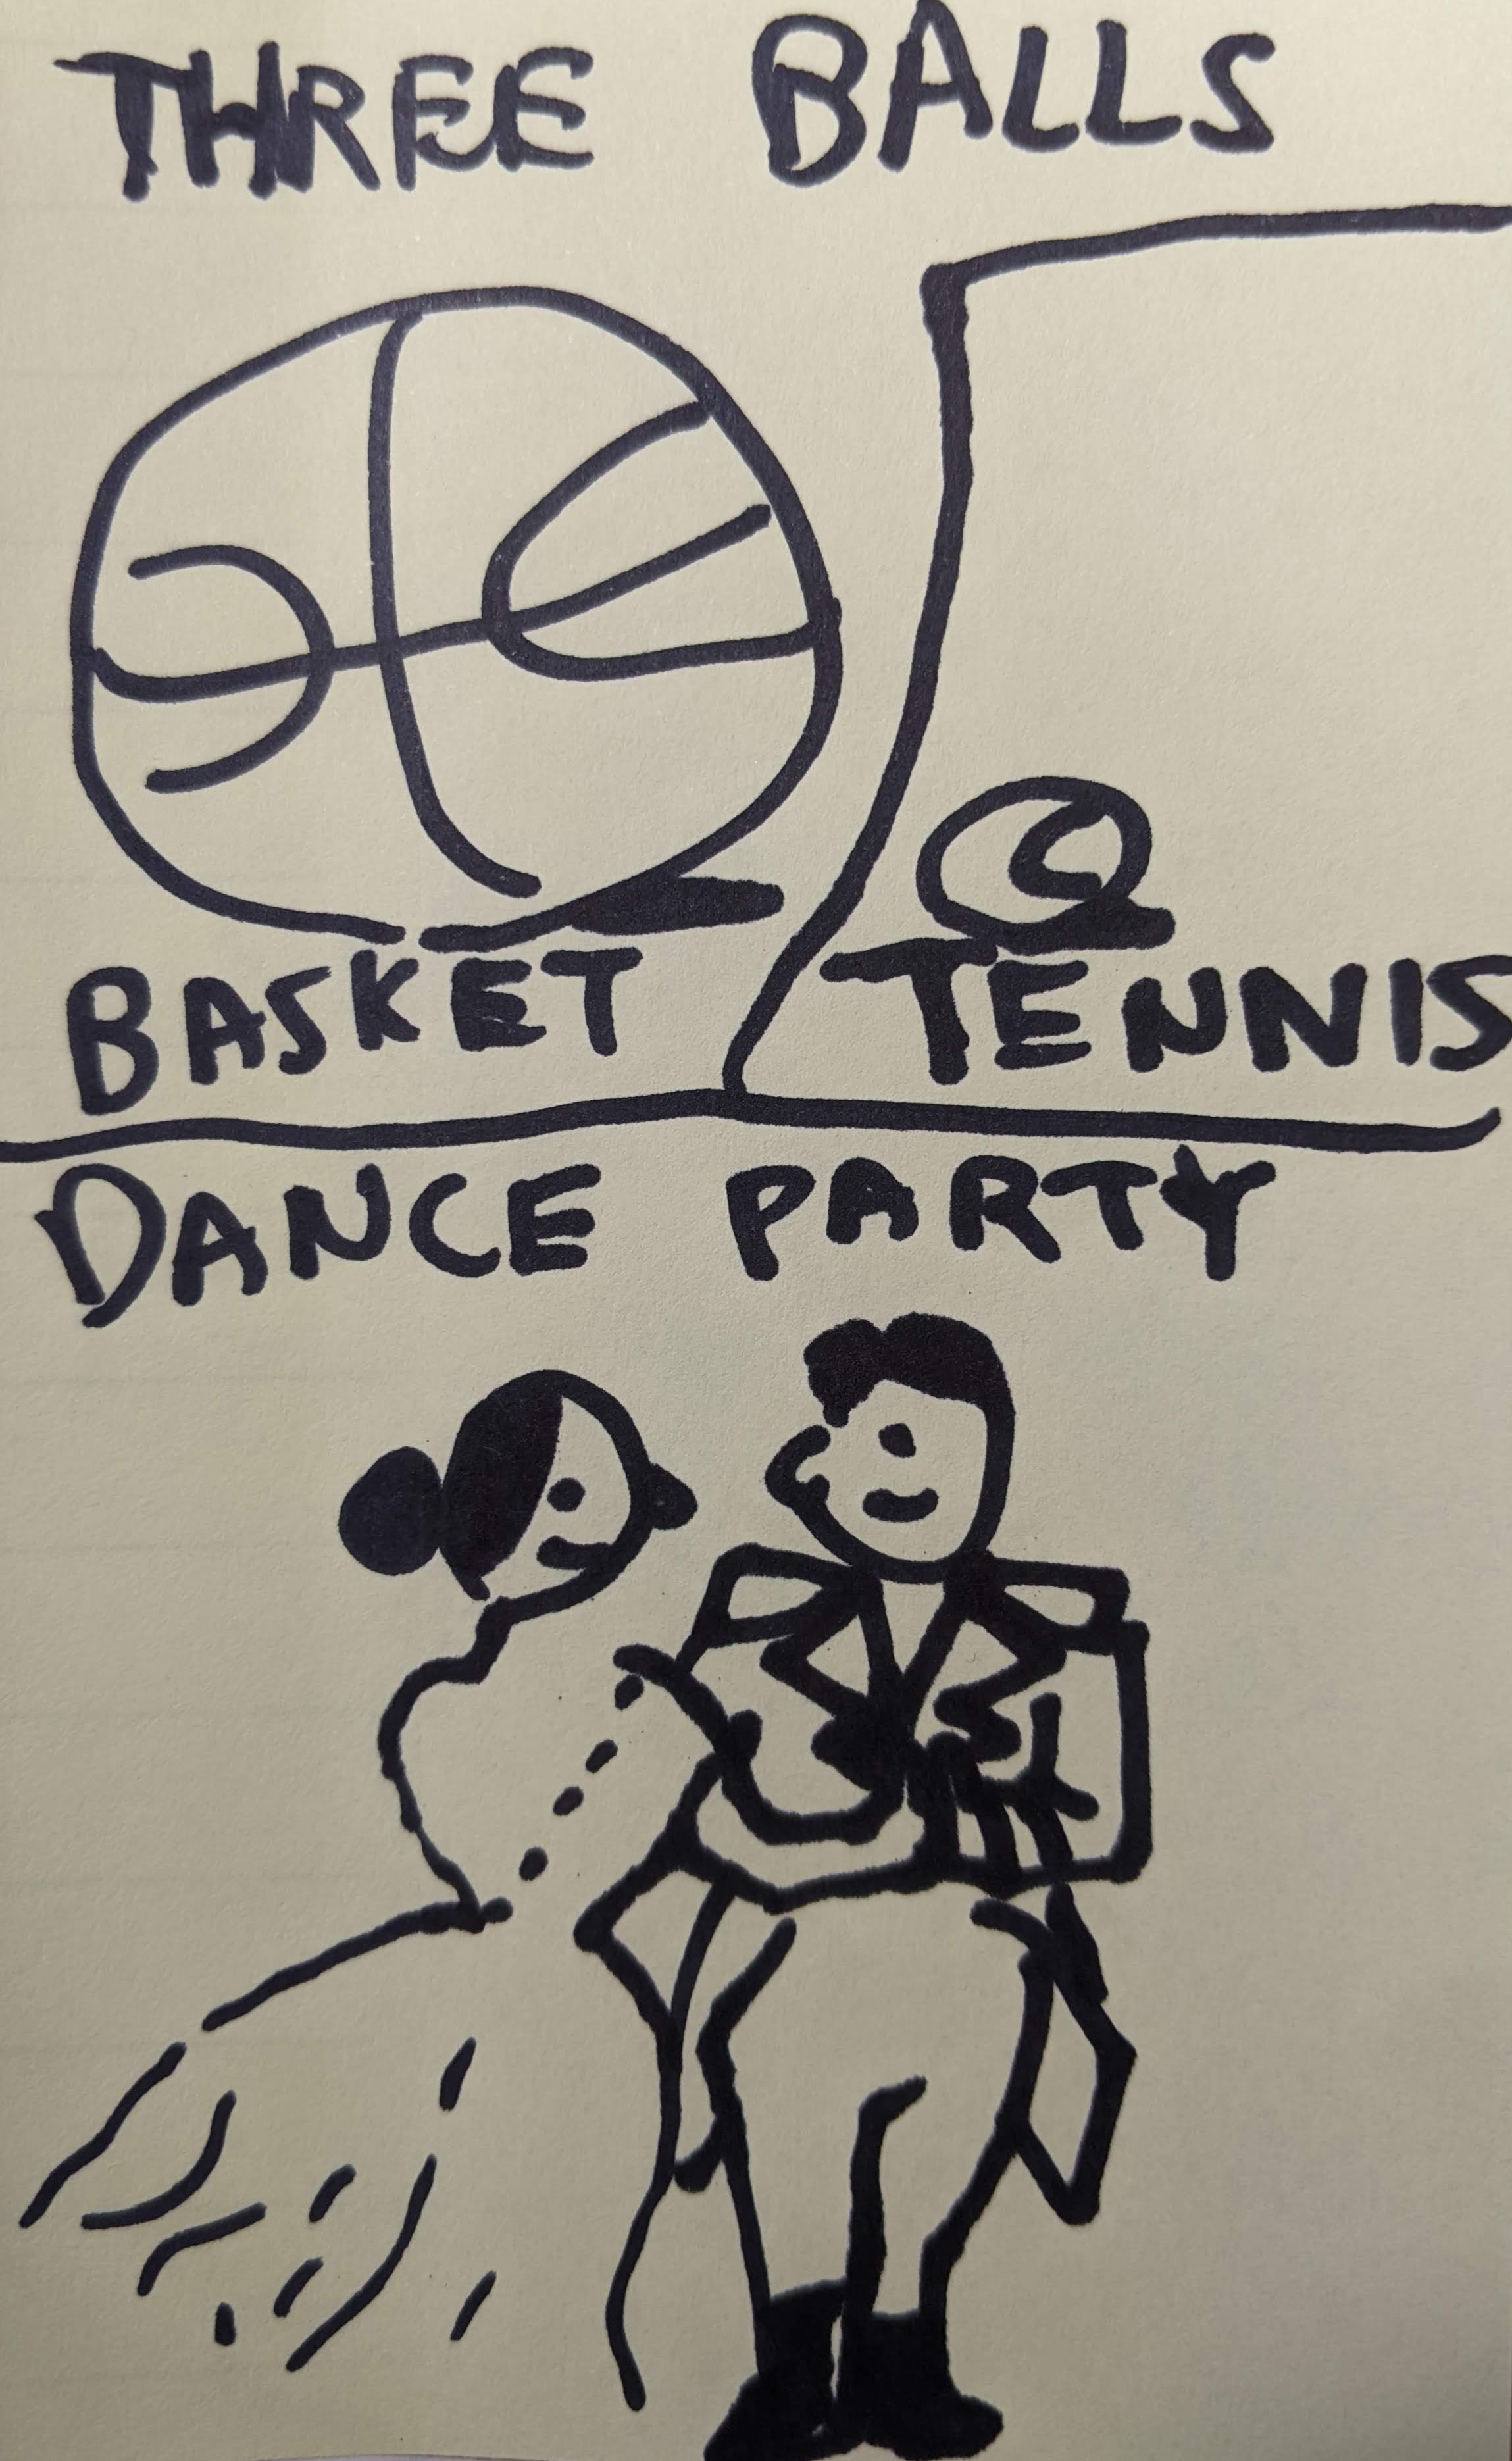 THREE BALLS
BASKET
TENNIS
DANCE PARTY